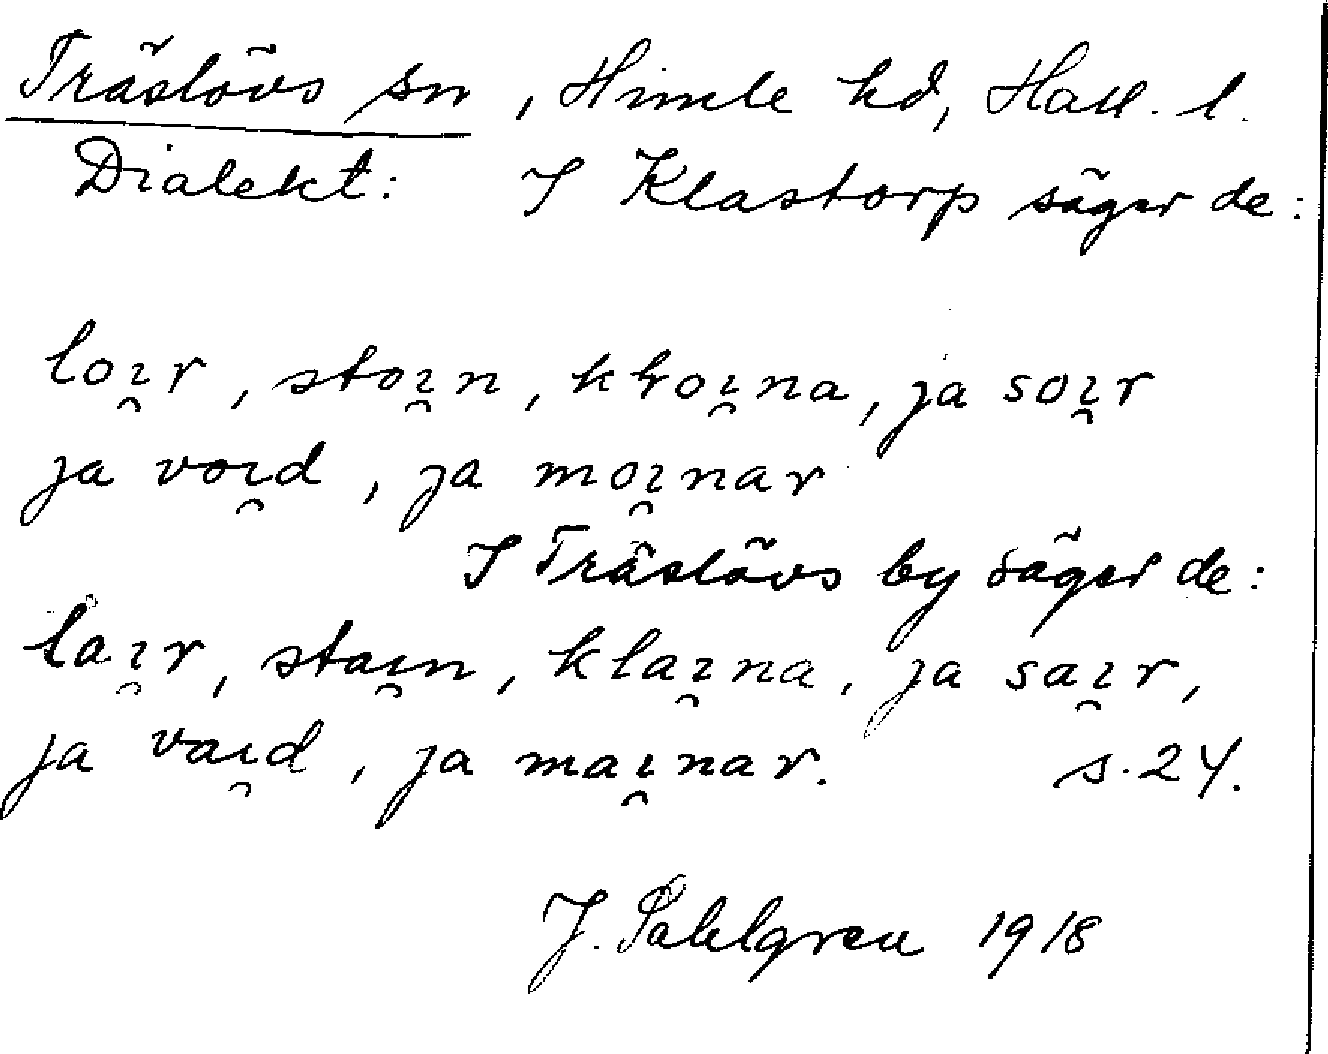 Träslövs sn, Himle hd, Hall. l.
Dialekt: I Klastorp säger de:
loı̯r, stoı̯n, kloı̯na, ja soı̯r
ja voı̯d, ja moı̯nar
I Träslövs by säger de:
laı̯r, staı̯n, klaı̯na, ja saı̯r,
ja vaı̯d, ja maı̯nar. s. 24.
J. Sahlgren 1918